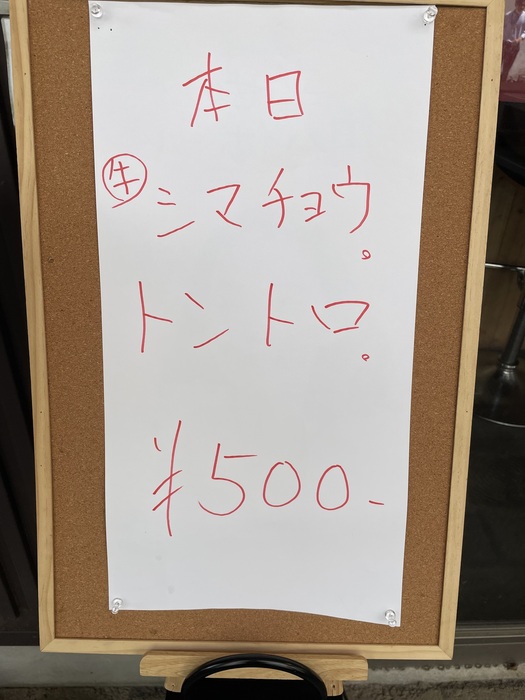 本日
牛 シマチョウ。
トントロ。
¥500-